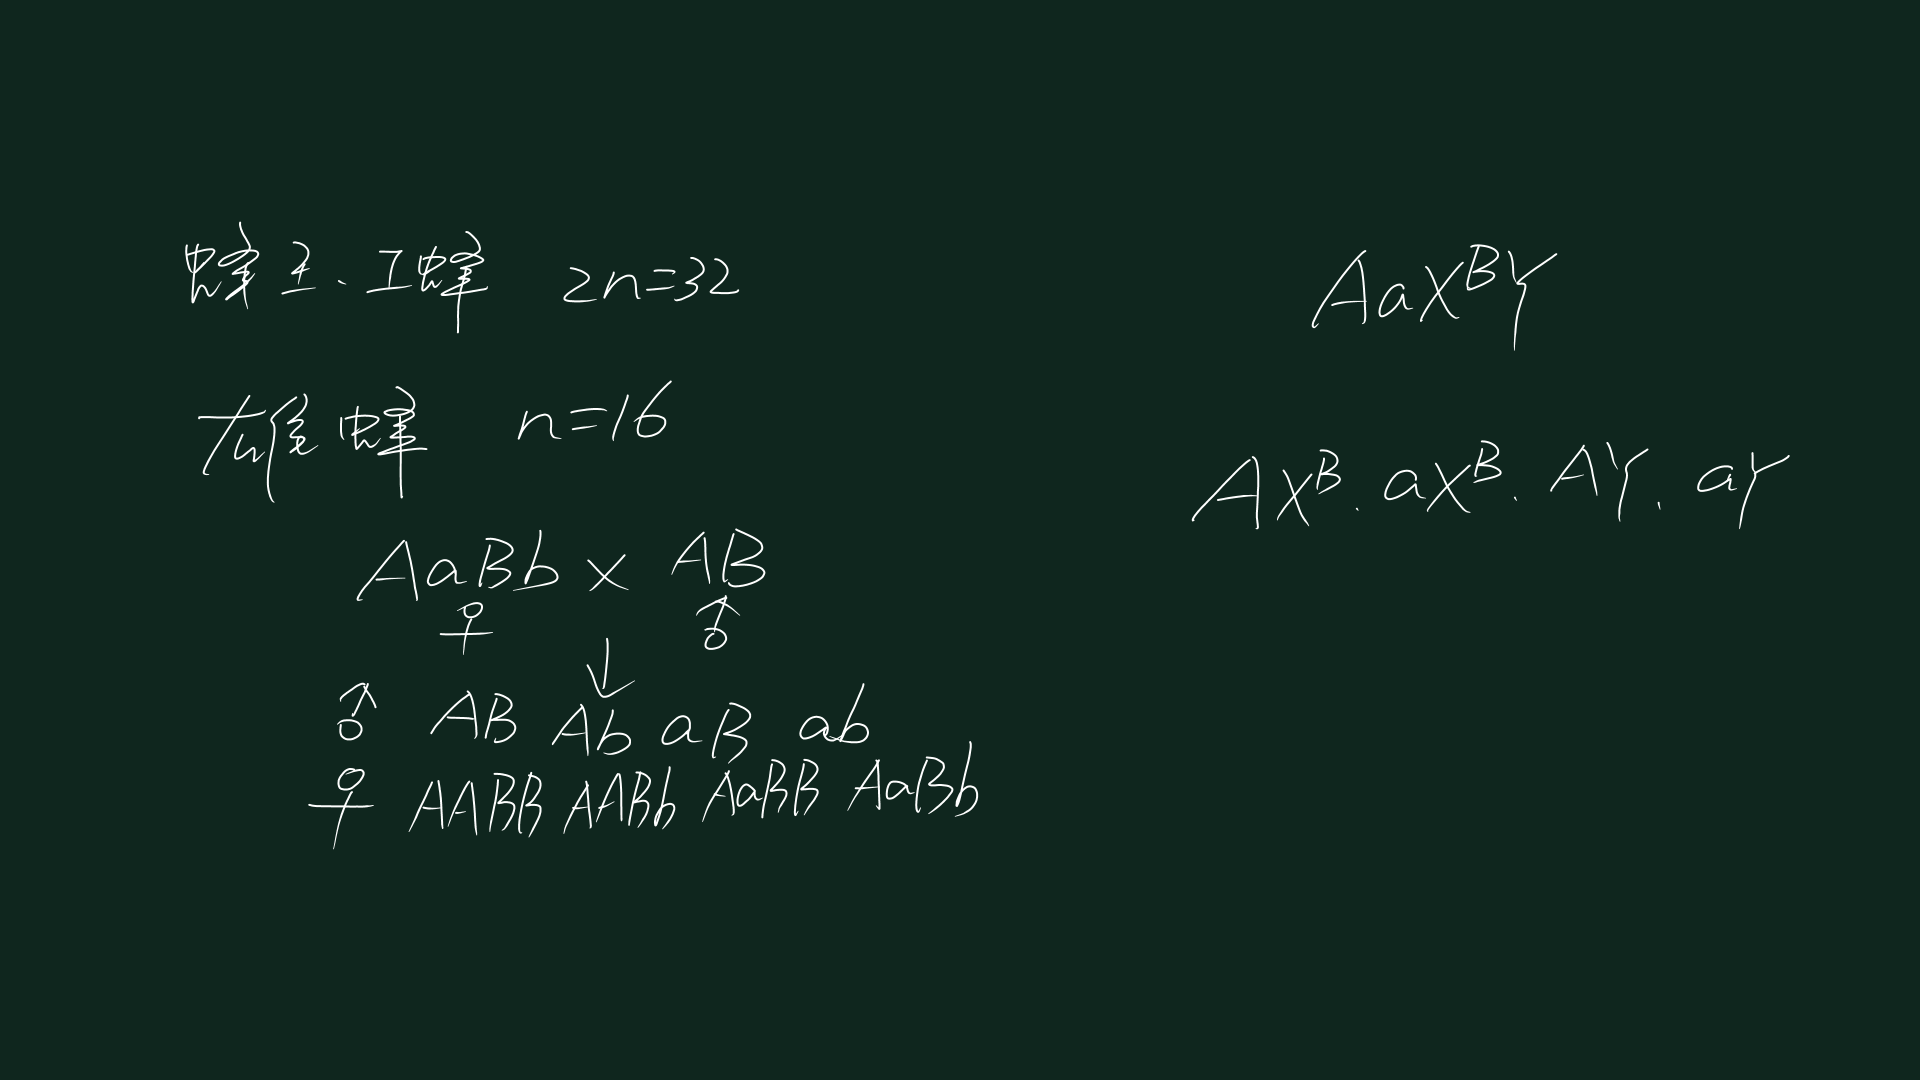 蜂王、工蜂 2n=32
雄蜂 n=16
AaBb × AB
♀ ♂
↓
♂ AB Ab aB ab
♀ AABB AABb AaBB AaBb
AaXᴮY
AXᴮ、aXᴮ、AY、aY